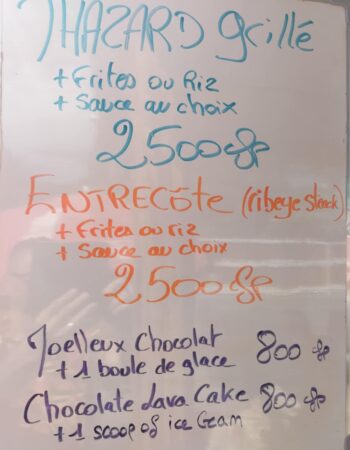 THAZARD grillé
+ Frites ou Riz
+ Sauce au choix
2500 cfp
ENTRECÔTE (ribeye steack)
+ Frites ou riz
+ Sauce au choix
2500 cfp
Moelleux Chocolat 800 cfp
+ 1 boule de glace
Chocolate Lava Cake 800 cfp
+ 1 scoop of ice Cream